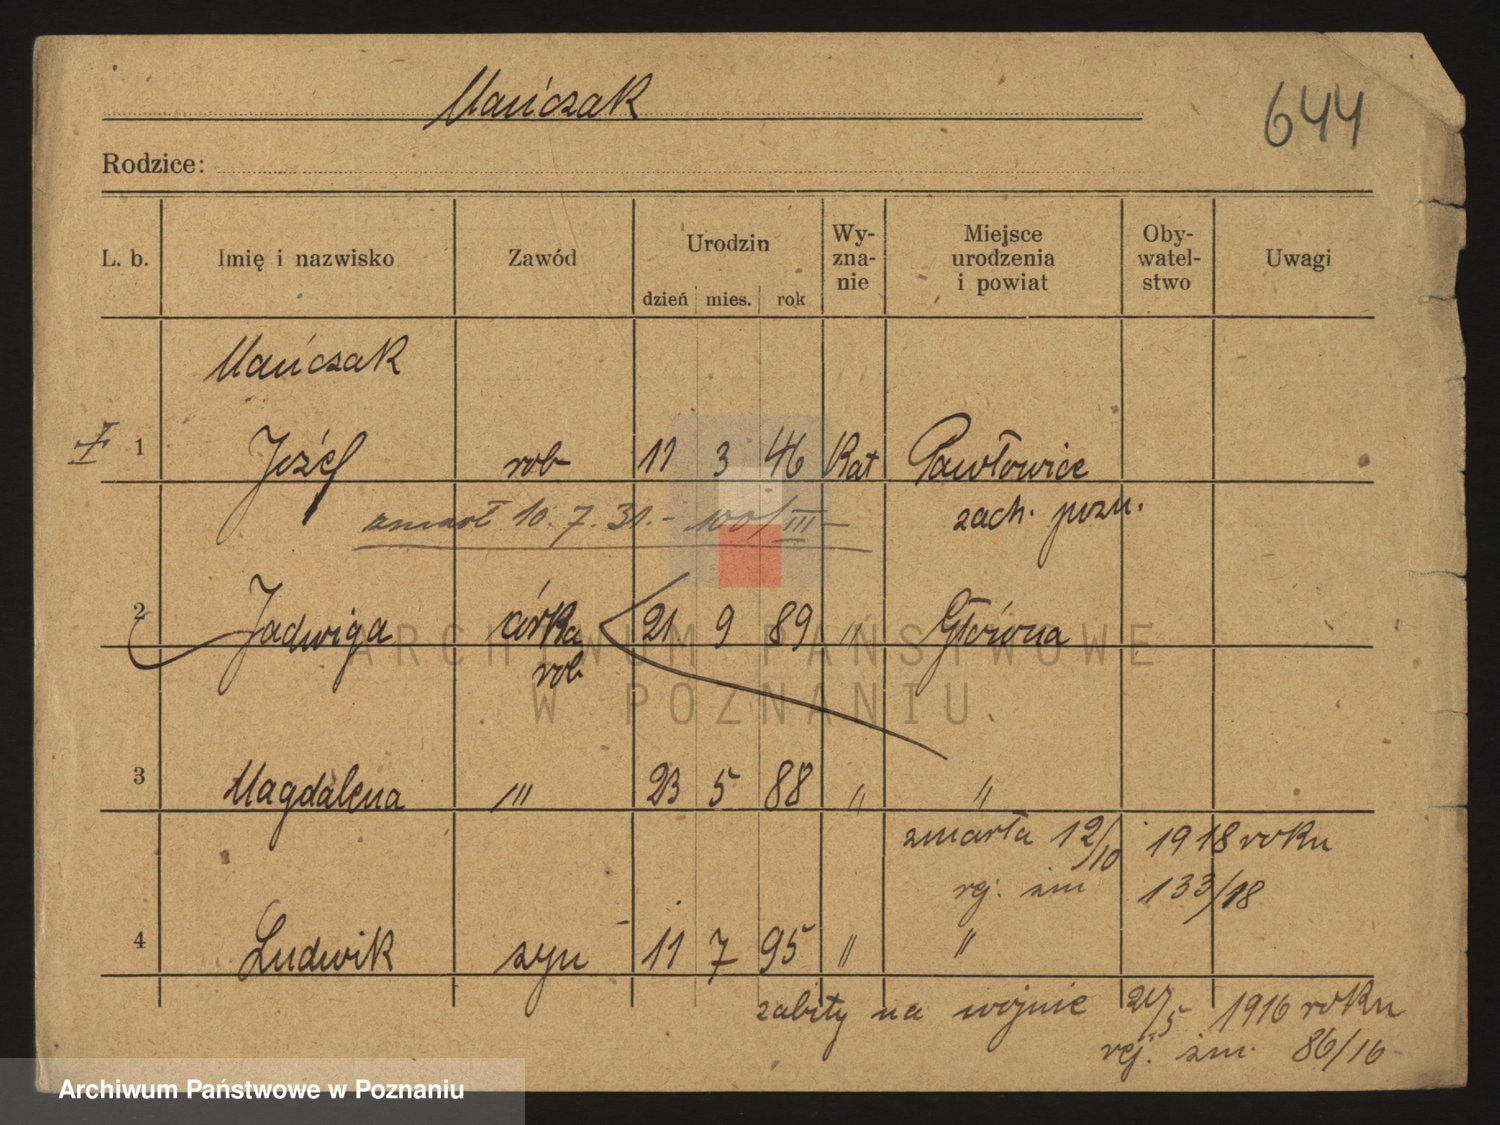 Mańczak
644
Rodzice:
L. b. Imię i nazwisko Zawód Urodzin dzień mies. rok Wy-zna-nie Miejsce urodzenia i powiat Oby-watel-stwo Uwagi
Mańczak
1 Józef rob 11 3 46 Kat Pawłowice
zach. pozn.
zmarł 10.7.31.- 100/III
2 Jadwiga córka 21 9 89 " Główna
rob
3 Magdalena "' 23 5 88 " "
zmarła 12/10 1918 roku
rej. zm 133/18
4 Ludwik syn 11 7 95 " "
zabity na wojnie 1916 roku
rej. zm. 86/16
ARCHIWUM PAŃSTWOWE
W POZNANIU
Archiwum Państwowe w Poznaniu